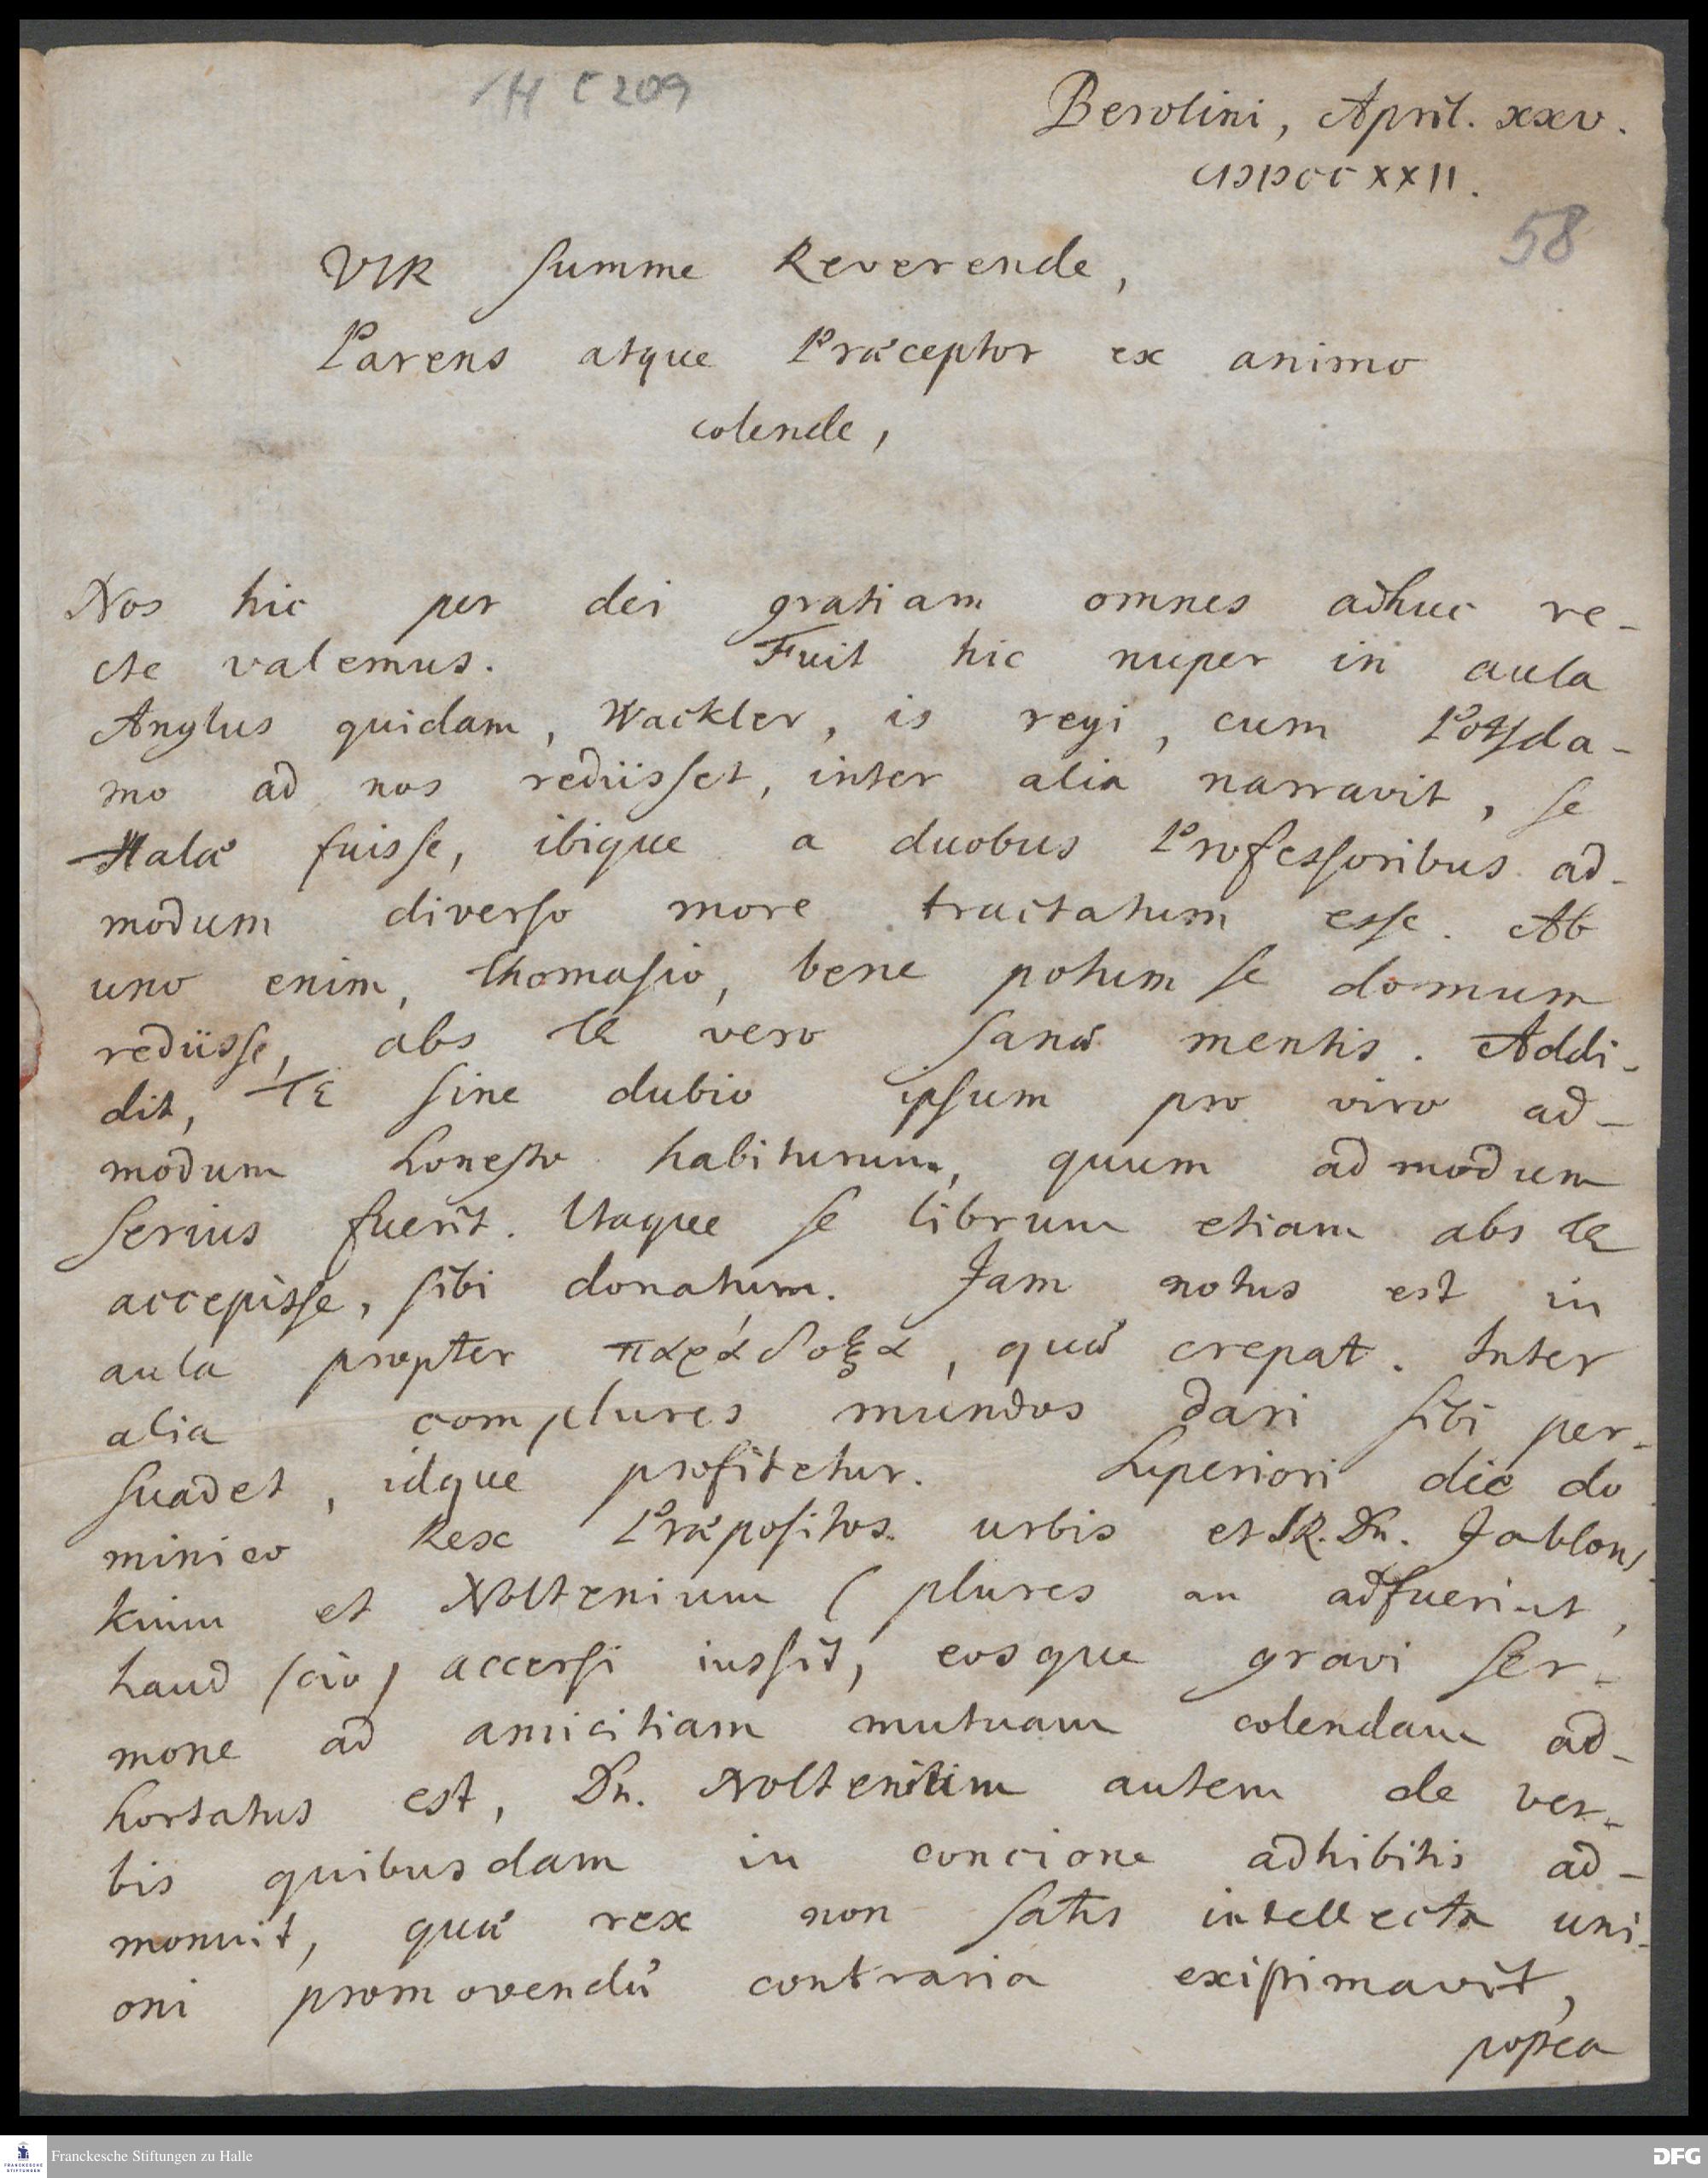 H C 209
Berolini, April. xxv.
CIƆIƆCCXXII.
58
VIR summe Reverende,
Parens atque Præceptor ex animo
colende,
Nos hic per dei gratiam omnes adhuc re-
cte valemus. Fuit hic nuper in aula
Anglus quidam, Wackler, is regi, cum Potsda-
mo ad nos rediisset, inter alia narravit, se
Halæ fuisse, ibique a duobus Professoribus ad-
modum diverso more tractatum esse. Ab
uno enim, Thomasio, bene potum se domum
rediisse, abs te vero sanæ mentis. Addi-
dit, Te sine dubio ipsum pro viro ad-
modum honesto habiturum, quum admodum
serius fuerit. Itaque se librum etiam abs te
accepisse, sibi donatum. Jam notus est in
aula propter παράδοξα, quæ crepat. Inter
alia complures mundos dari sibi per-
suadet, idque profitetur. Superiori die do
minico Rex Præpositos urbis et SR. Dn. Jablons
kium et Noltenium (plures an adfuerint,
haud scio) accersi iussit, eosque gravi ser-
mone ad amicitiam mutuam colendam ad-
hortatus est, Dn. Noltenium autem de ver-
bis quibusdam in concione adhibitis ad-
monuit, quæ rex non satis intellecta uni-
oni promovendæ contraria existimavit,
postea
FRANCKESCHE STIFTUNGEN
Franckesche Stiftungen zu Halle
DFG